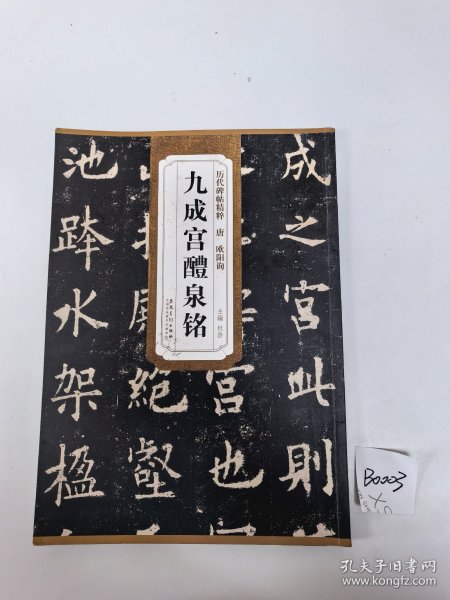 历代碑帖精粹 唐 欧阳询
九成宫醴泉铭
主编 杜浩
安徽美术出版社
成之宫此则
宫也
绝壑
池跨水架楹
B0003
孔夫子旧书网
www.kongfz.com